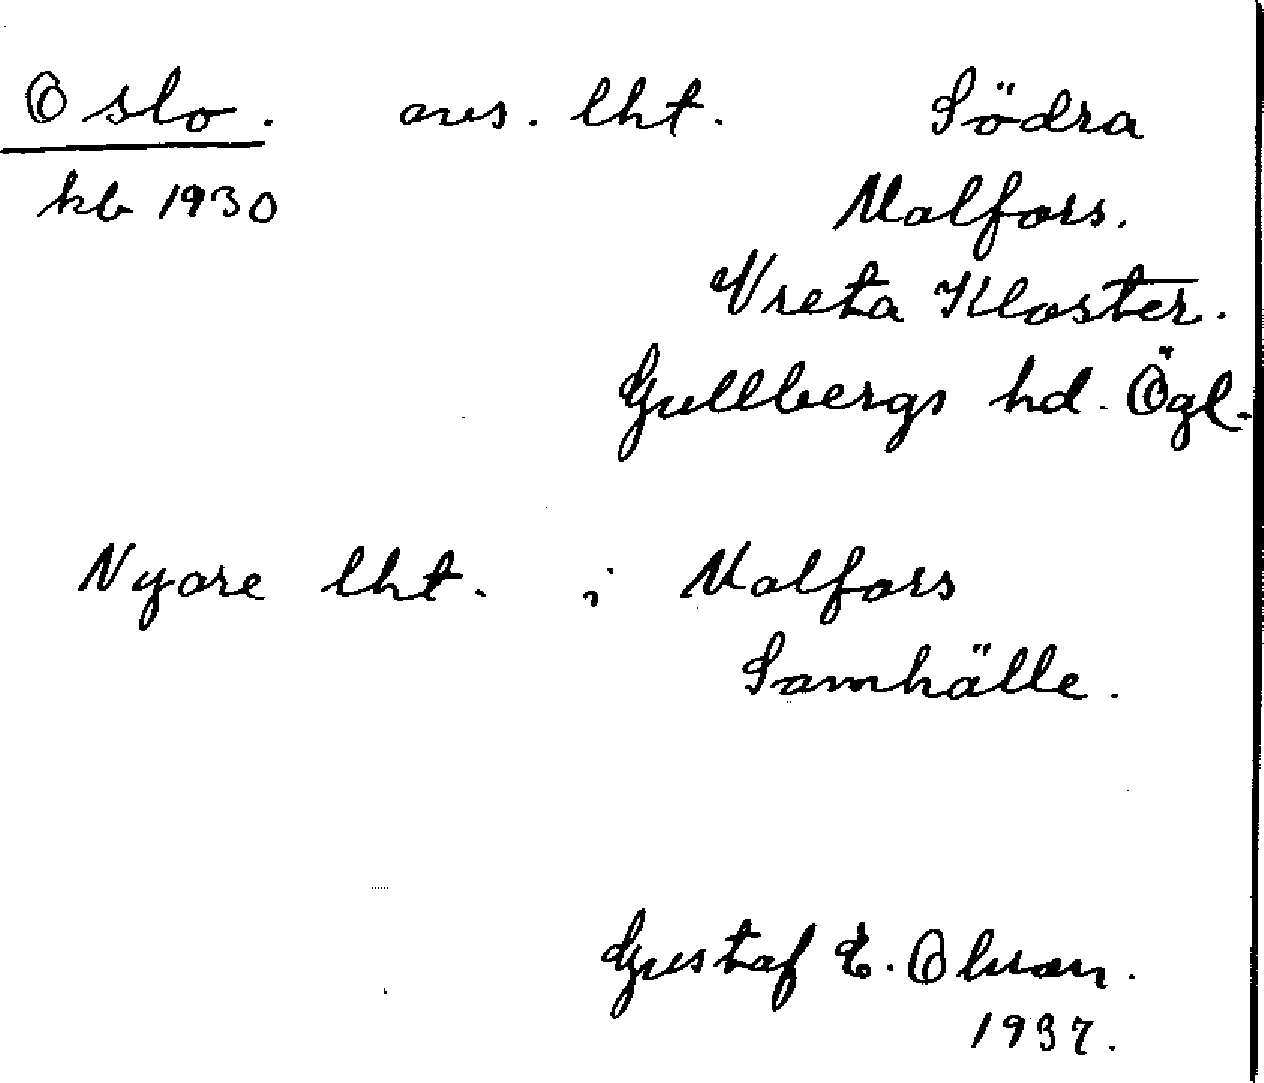 Oslo. avs. lht. Södra
kb 1930 Malfors.
Vreta Kloster.
Gullbergs hd. Ögl.
Nyare lht. i Malfors
Samhälle.
Gustaf E. Olsson.
1937.